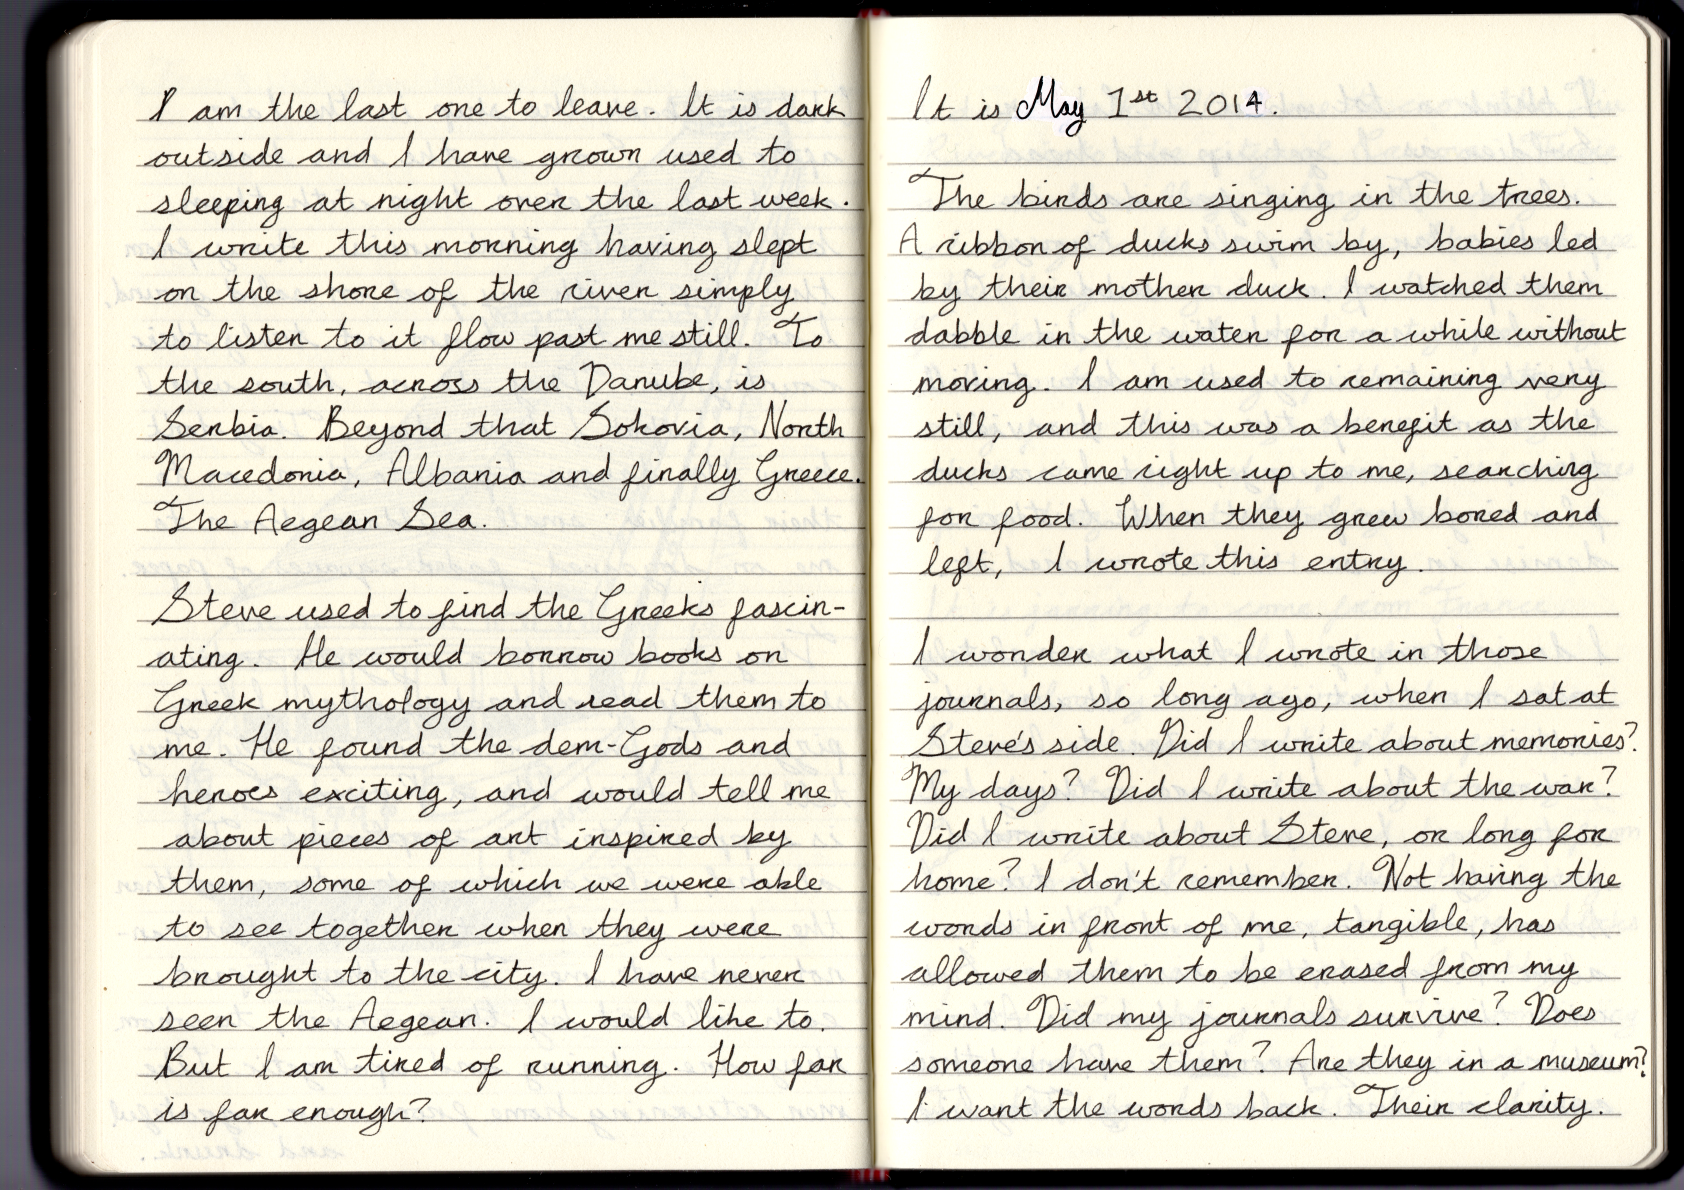 I am the last one to leave. It is dark
outside and I have grown used to
sleeping at night over the last week.
I write this morning having slept
on the shore of the river simply
to listen to it flow past me still. To
the south, across the Danube, is
Serbia. Beyond that Sokovia, North
Macedonia, Albania and finally Greece.
The Aegean Sea.
Steve used to find the Greeks fascin-
ating. He would borrow books on
Greek mythology and read them to
me. He found the dem-Gods and
heroes exciting, and would tell me
about pieces of art inspired by
them, some of which we were able
to see together when they were
brought to the city. I have never
seen the Aegean. I would like to.
But I am tired of running. How far
is far enough?
It is May 1st 2014.
The birds are singing in the trees.
A ribbon of ducks swim by, babies led
by their mother duck. I watched them
dabble in the water for a while without
moving. I am used to remaining very
still, and this was a benefit as the
ducks came right up to me, searching
for food. When they grew bored and
left, I wrote this entry.
I wonder what I wrote in those
journals, so long ago, when I sat at
Steve's side. Did I write about memories?
My days? Did I write about the war?
Did I write about Steve, or long for
home? I don't remember. Not having the
words in front of me, tangible, has
allowed them to be erased from my
mind. Did my journals survive? Does
someone have them? Are they in a museum?
I want the words back. Their clarity.